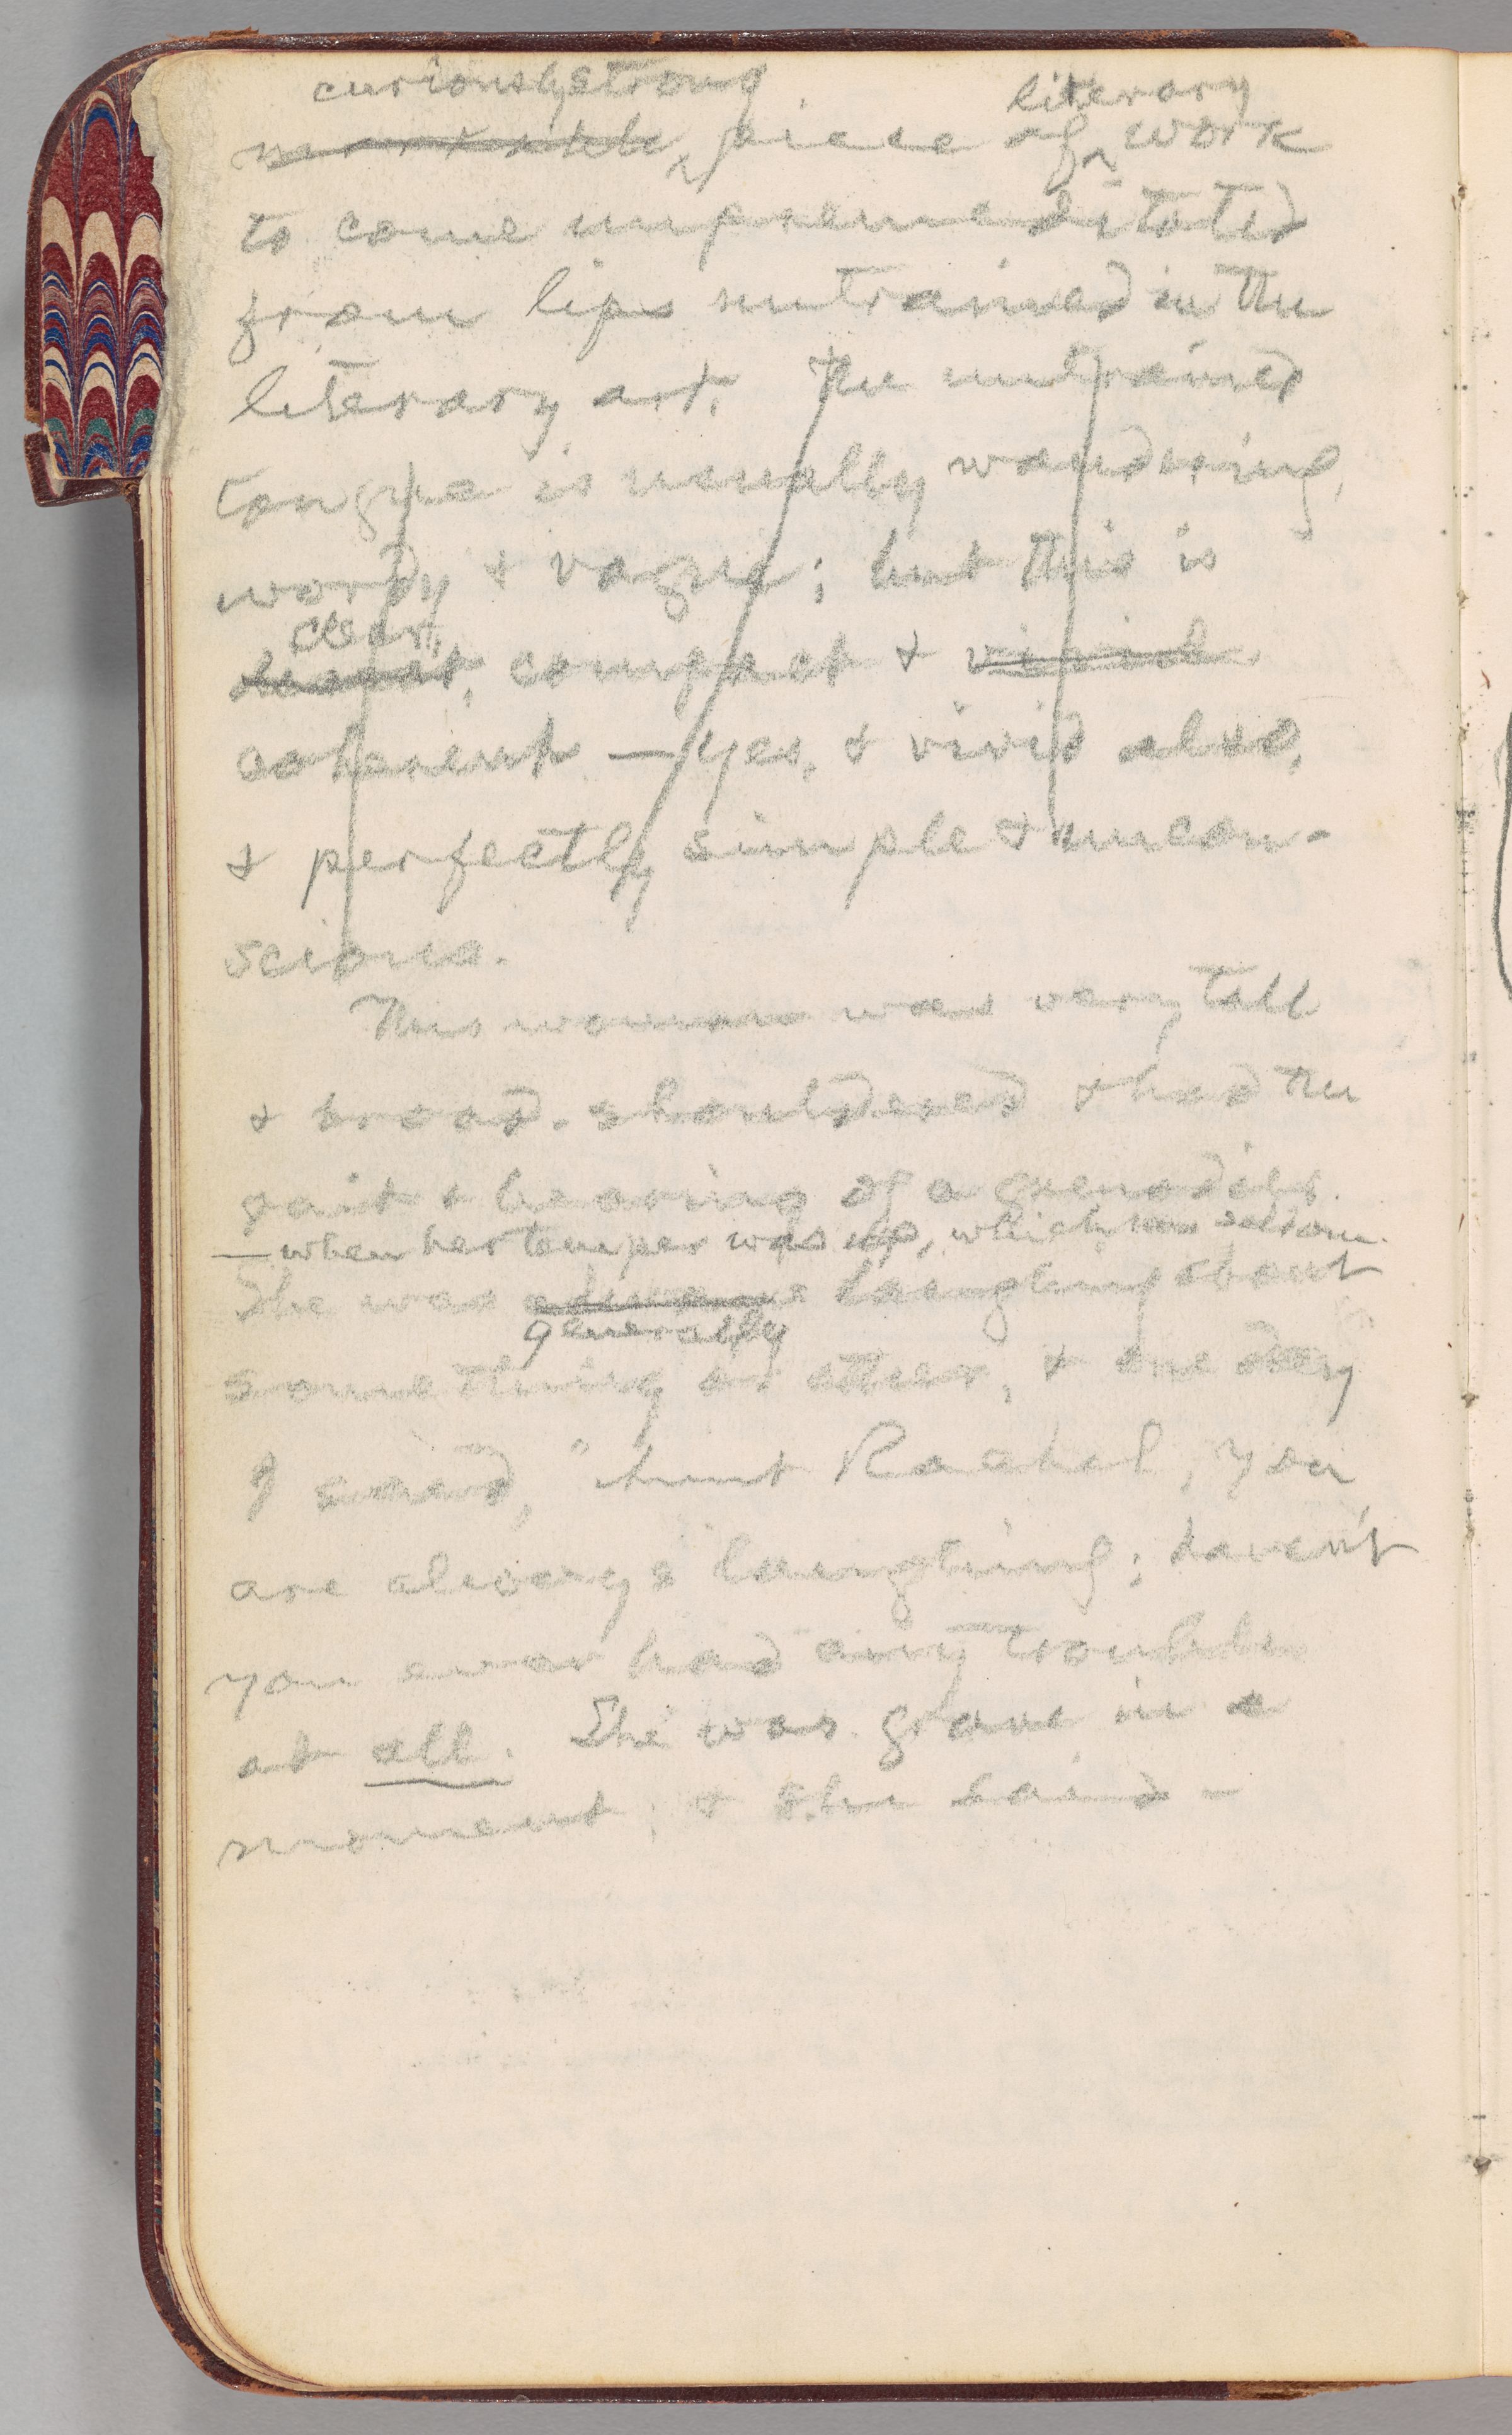 curiously strong literary
remarkable piece of work
to come unpremeditated
from lips untrained in the
literary art. The untrained
tongue is usually wandering,
wordy & vague; but this is
clear,
compact & vivid
coherent — yes, & vivid also,
& perfectly simple & uncon-
scious.
This woman was very tall
& broad-shouldered & had the
gait & bearing of a grenadier.
— when her temper was up, which was seldom.
She was always laughing about
generally
something or other, & one day
I said, "Aunt Rachel, you
are always laughing; haven't
you ever had any trouble
at all. She was grave in a
moment; & she said—